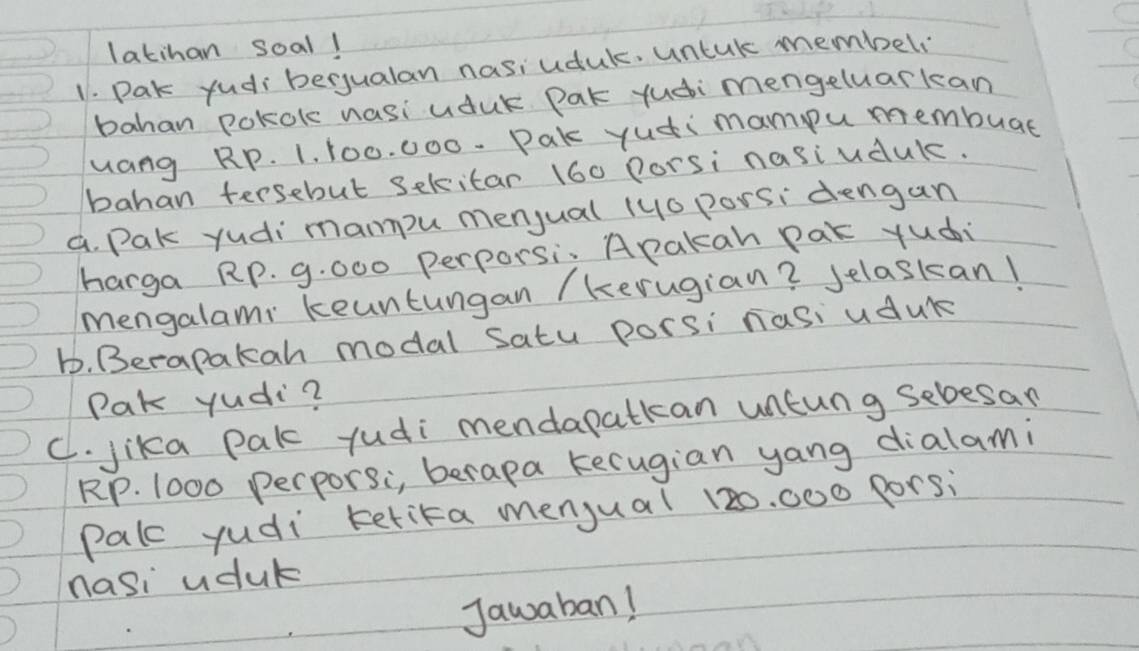 latihan soal!
1. Pak yudi berjualan nasi uduk. untuk membeli
bahan pokok nasi uduk Pak yudi mengeluarkan
uang RP. 1.100.000. Pak yudi mampu membuat
bahan tersebut sekitar 160 Porsi nasi uduk.
a. Pak yudi mampu menjual 140 porsi dengan
harga RP. 9.000 perporsi. Apakah pak yudi
mengalami keuntungan / kerugian? Jelaskan!
b. Berapakah modal satu porsi nasi uduk
Pak yudi?
C. Jika Pak yudi mendapatkan untung sebesar
RP. 1000 perporsi, berapa kerugian yang dialami
Pak yudi ketika menjual 120.000 porsi
nasi uduk
Jawaban!